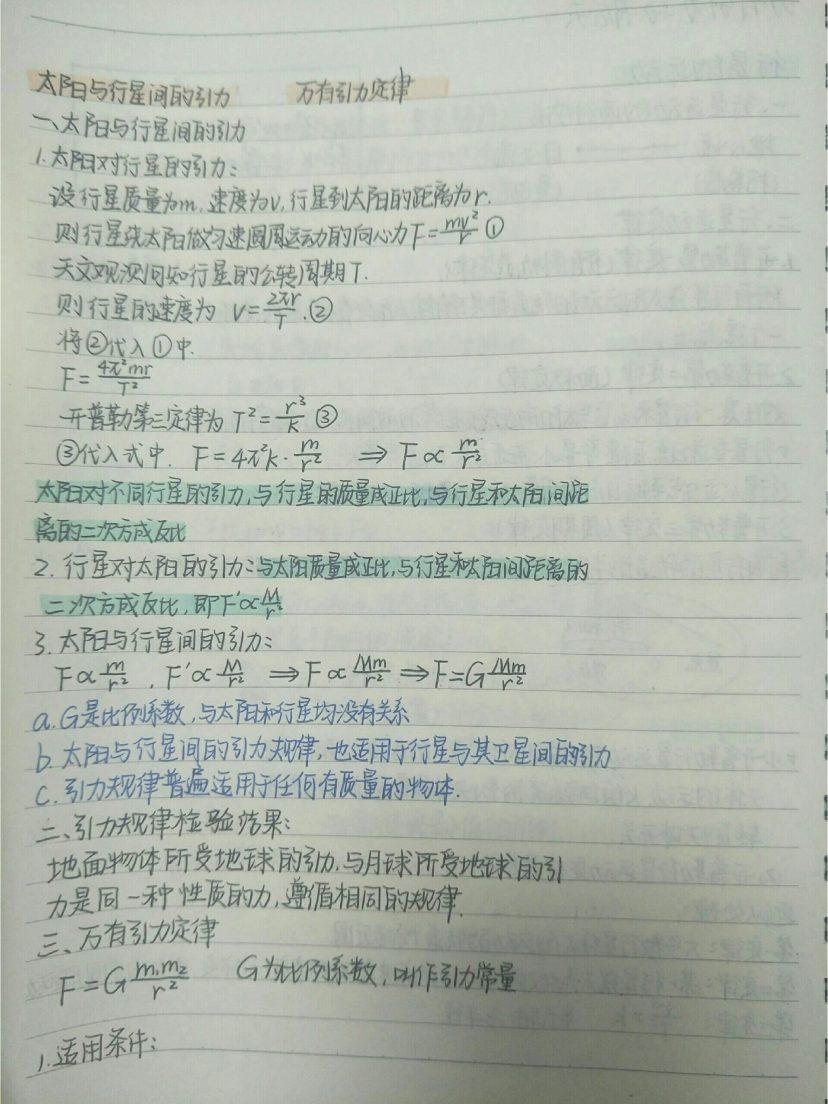 太阳与行星间的引力 万有引力定律
一、太阳与行星间的引力
1.太阳对行星的引力：
设行星质量为m,速度为v,行星到太阳的距离为r.
则行星绕太阳做匀速圆周运动的向心力F=mv²/r ①
天文观测间知行星的公转周期T.
则行星的速度为 v=2πr/T.②
将②代入①中.
F=4π²mr/T²
开普勒第三定律为T²=r³/k ③
③代入式中. F=4π²k·m/r² ⇒F∝m/r²
太阳对不同行星的引力,与行星的质量成正比,与行星和太阳间距
离的二次方成反比
2.行星对太阳的引力:与太阳质量成正比,与行星和太阳间距离的
二次方成反比,即F'∝M/r²
3.太阳与行星间的引力:
F∝m/r². F'∝M/r² ⇒F∝Mm/r²⇒F=GMm/r²
a.G是比例系数,与太阳和行星均没有关系
b.太阳与行星间的引力规律,也适用于行星与其卫星间的引力
c.引力规律普遍适用于任何有质量的物体.
二、引力规律检验结果:
地面物体所受地球的引力,与月球所受地球的引
力是同一种性质的力,遵循相同的规律.
三、万有引力定律
F=Gm₁m₂/r² G为比例系数,叫作引力常量
1.适用条件: